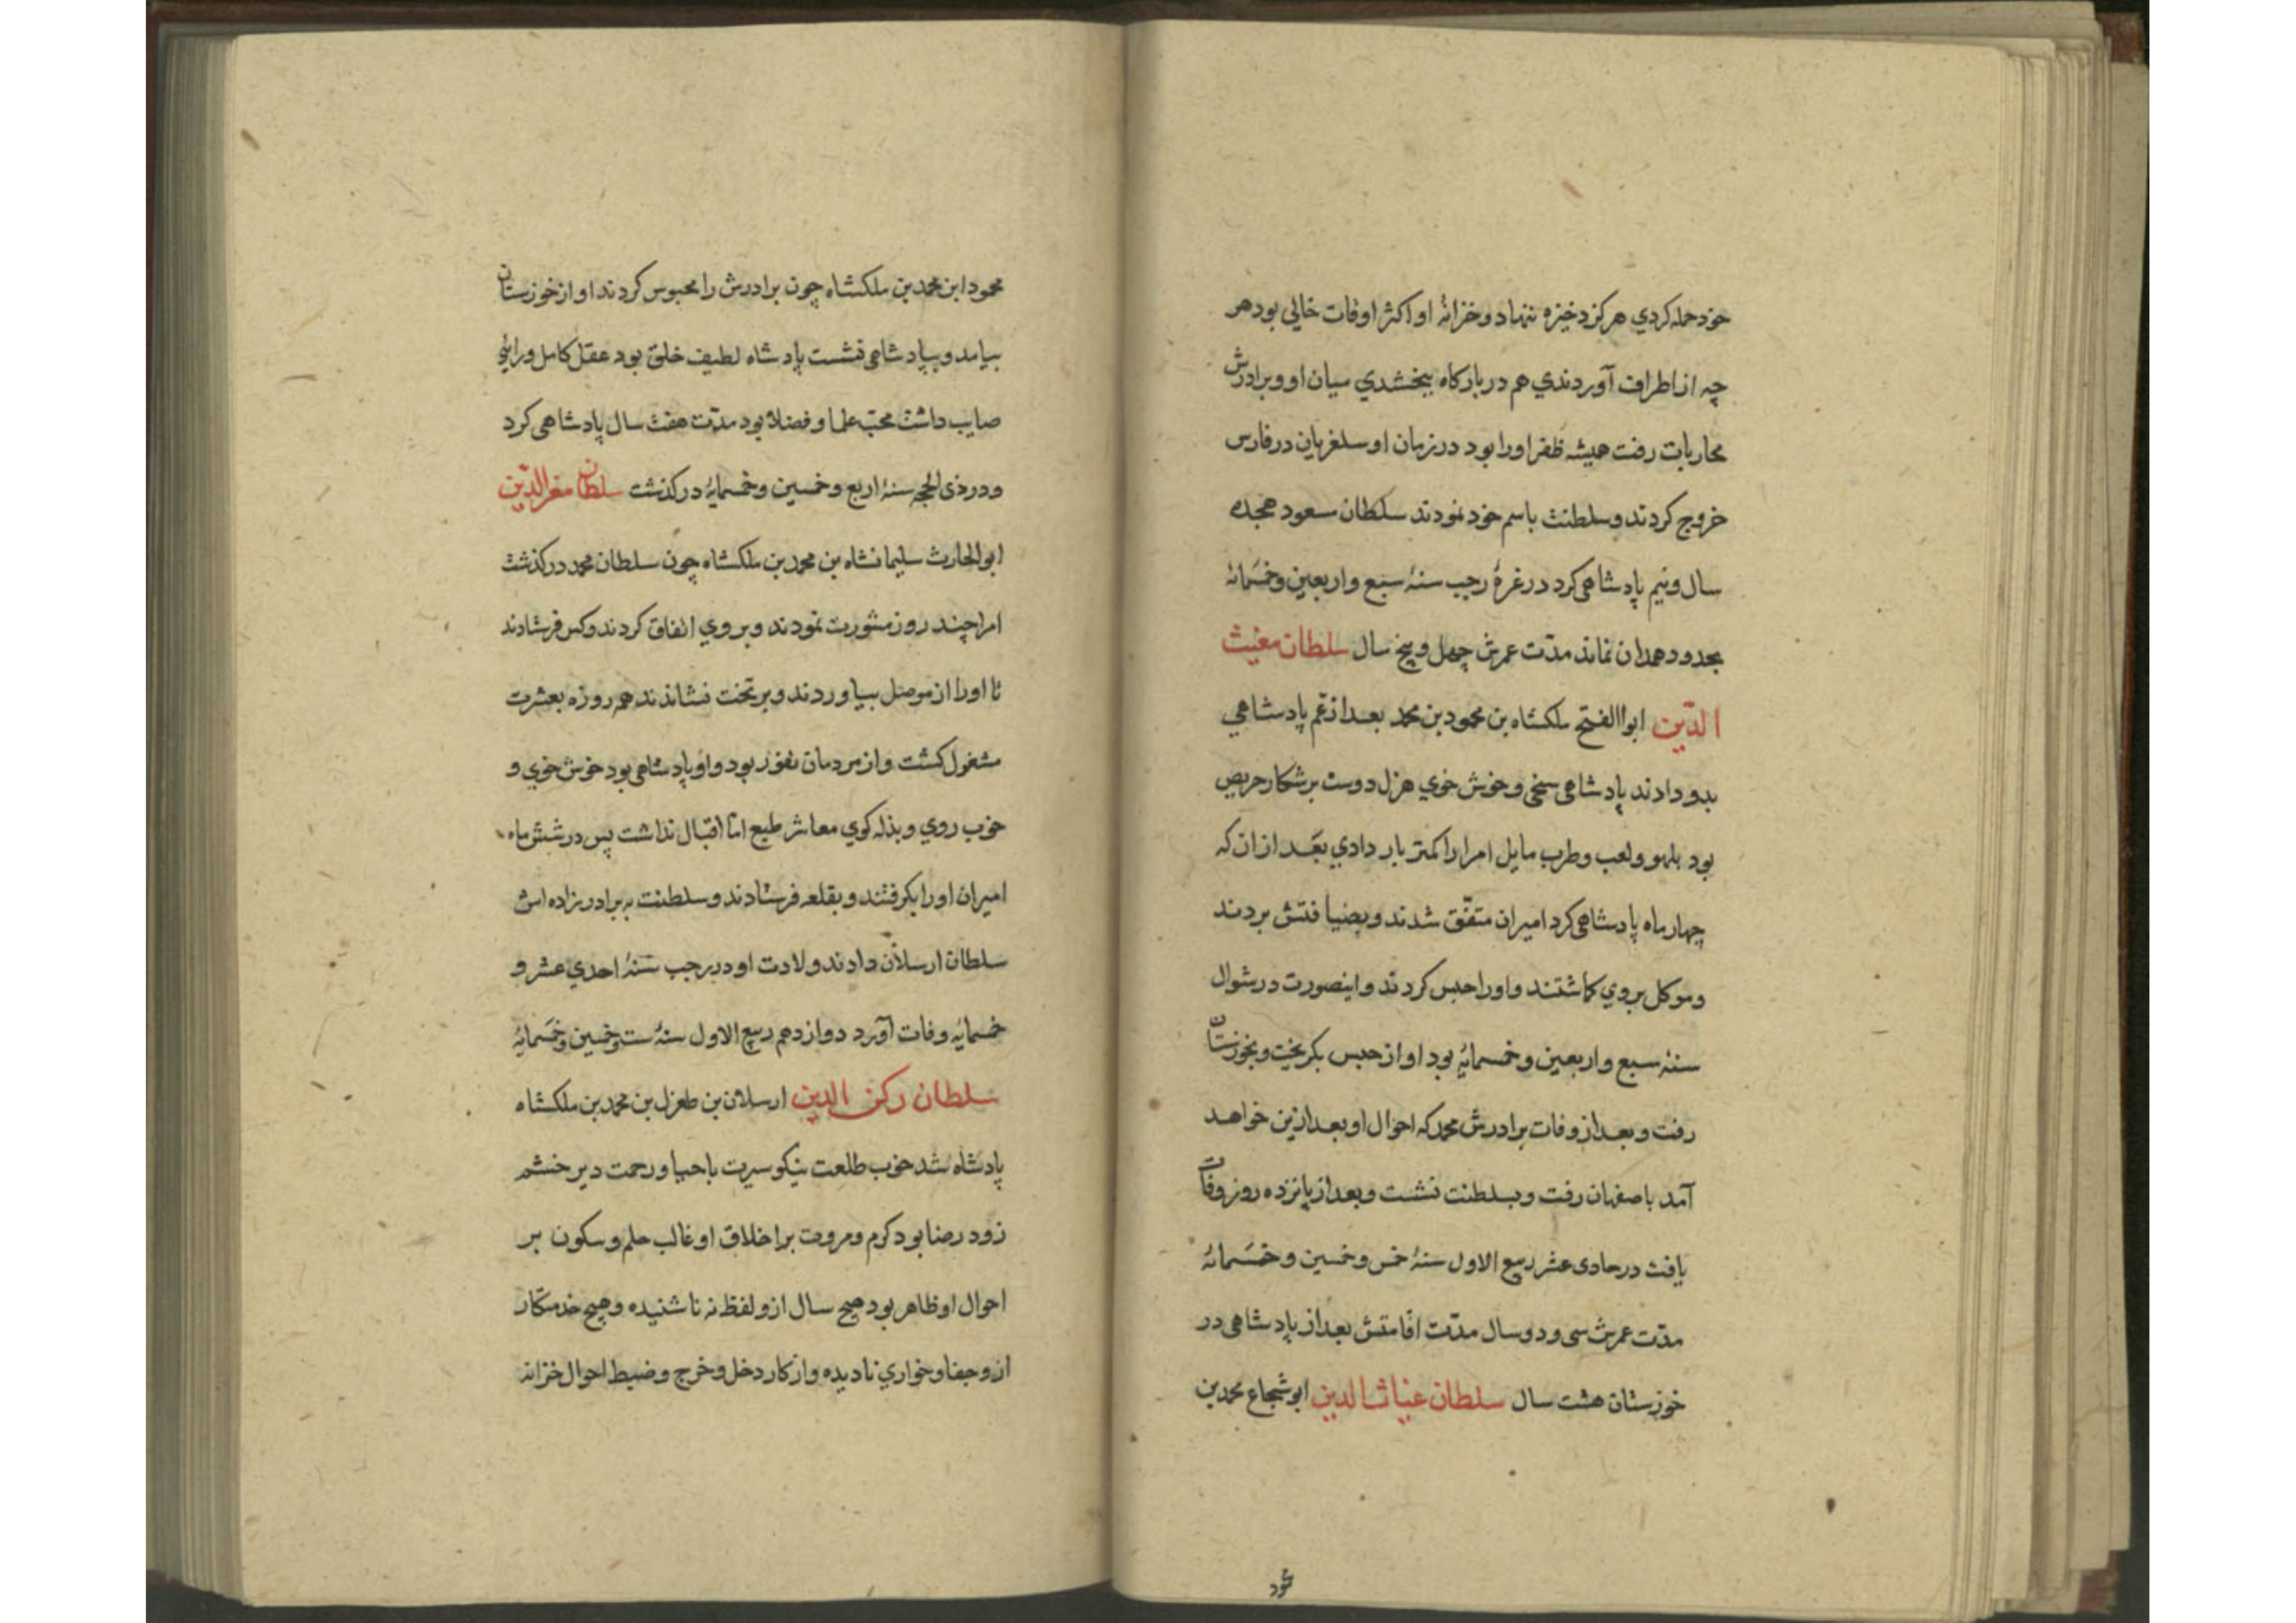 خود حمله کردي هرگز دخیره ننهاد و خزانهٔ او اکثر اوقات خالی بود هر
چه از اطراف آوردندي هم در بارکاه ببخشدي میان او و برادرش
محاربات رفت همیشه ظفر اورا بود در زمان او سلغریان در فارس
خروج کردند و سلطنت باسم خود نمودند سلطان مسعود هجده
سال و نیم پادشاهی کرد در غرهٔ رجب سنهٔ سبع و اربعین و خمسمائه
بحدود همدان نماند مدّت عمرش چهل و پنج سال سلطان مغیث
الدّین ابوالفتح ملکشاه بن محمود بن محمد بعد از عّم پادشاهي
بدو دادند پادشاهی سخی و خوش خوي هزل دوست بر شکار حریص
بود بلهو و لعب و طرب مایل امرا را کمتر بار دادي بعَد از ان که
چهار ماه پادشاهی کرد امیران متفّق شدند و بضیافتش بردند
و موکل بروي کماشتند و اورا حبس کردند و اینصورت در شوال
سنهٔ سبع و اربعین و خمسمایهٔ بود او از حبس بکریخت و بخوزستان
رفت و بعد از وفات برادرش محمد که احوال او بعد ازین خواهد
آمد باصفهان رفت و بسلطنت نشست و بعد از پانزده روز وفات
یافت در حادی عشر ربیع الاول سنهٔ خمس و خمسین و خمَسمائه
مدّت عمرش سی و دو سال مدّت اقامتش بعد از پادشاهی در
خوزستان هشت سال سلطان غیاث الدین ابو شجاع محمد بن
محمود ابن محمد بن ملکشاه چون برادرش را محبوس کردند او از خوزستان
بیامد و بپادشاهی نشست پادشاه لطیف خلق بود عقل کامل و رائی
صایب داشت محبّ علما و فضلا بود مدّت هفت سال پادشاهی کرد
و در ذی الحجه سنهٔ اربع و خمسین و خمسمایهٔ در کذشت سلطان معز الدّین
ابو الحارث سلیمانشاه بن محمد بن ملکشاه چون سلطان محمد در کذشت
امرا چند روز مشورت نمودند و بروي اتفاق کردند و کس فرستادند
تا اورا از موصل بیاوردند و بر تخت نشاندند همه روزه بعشرت
مشغول کشت و از مردمان نفور بود و او پادشاهی بود خوش خوي و
خوب روي و بذله کوي معاشر طبع امّا اقبال نداشت پس در شش ماه
امیران اورا بکرفتند و بقلعه فرستادند و سلطنت به برادر زاده اش
سلطان ارسلان دادند ولادت او در رجب سنهٔ احدي عشر و
خمسمایهٔ وفات آورد دوازدهم ربیع الاول سنهٔ ست و خمسین و خمَسمایهٔ
سلطان رکن الدین ارسلان بن طغرل بن محمد بن ملکشاه
پادشاه شد خوب طلعت نیکو سیرت با حیا و رحمت دیر خشم
زود رضا بود کرم و مروت بر اخلاق او غالب حلم و سکون بر
احوال او ظاهر بود هیچ سال ازو لفظ نه ناشنیده و هیچ خدمتکار
ازو جفا و خواري نادیده و از کار دخل و خرج و ضبط احوال خزانه